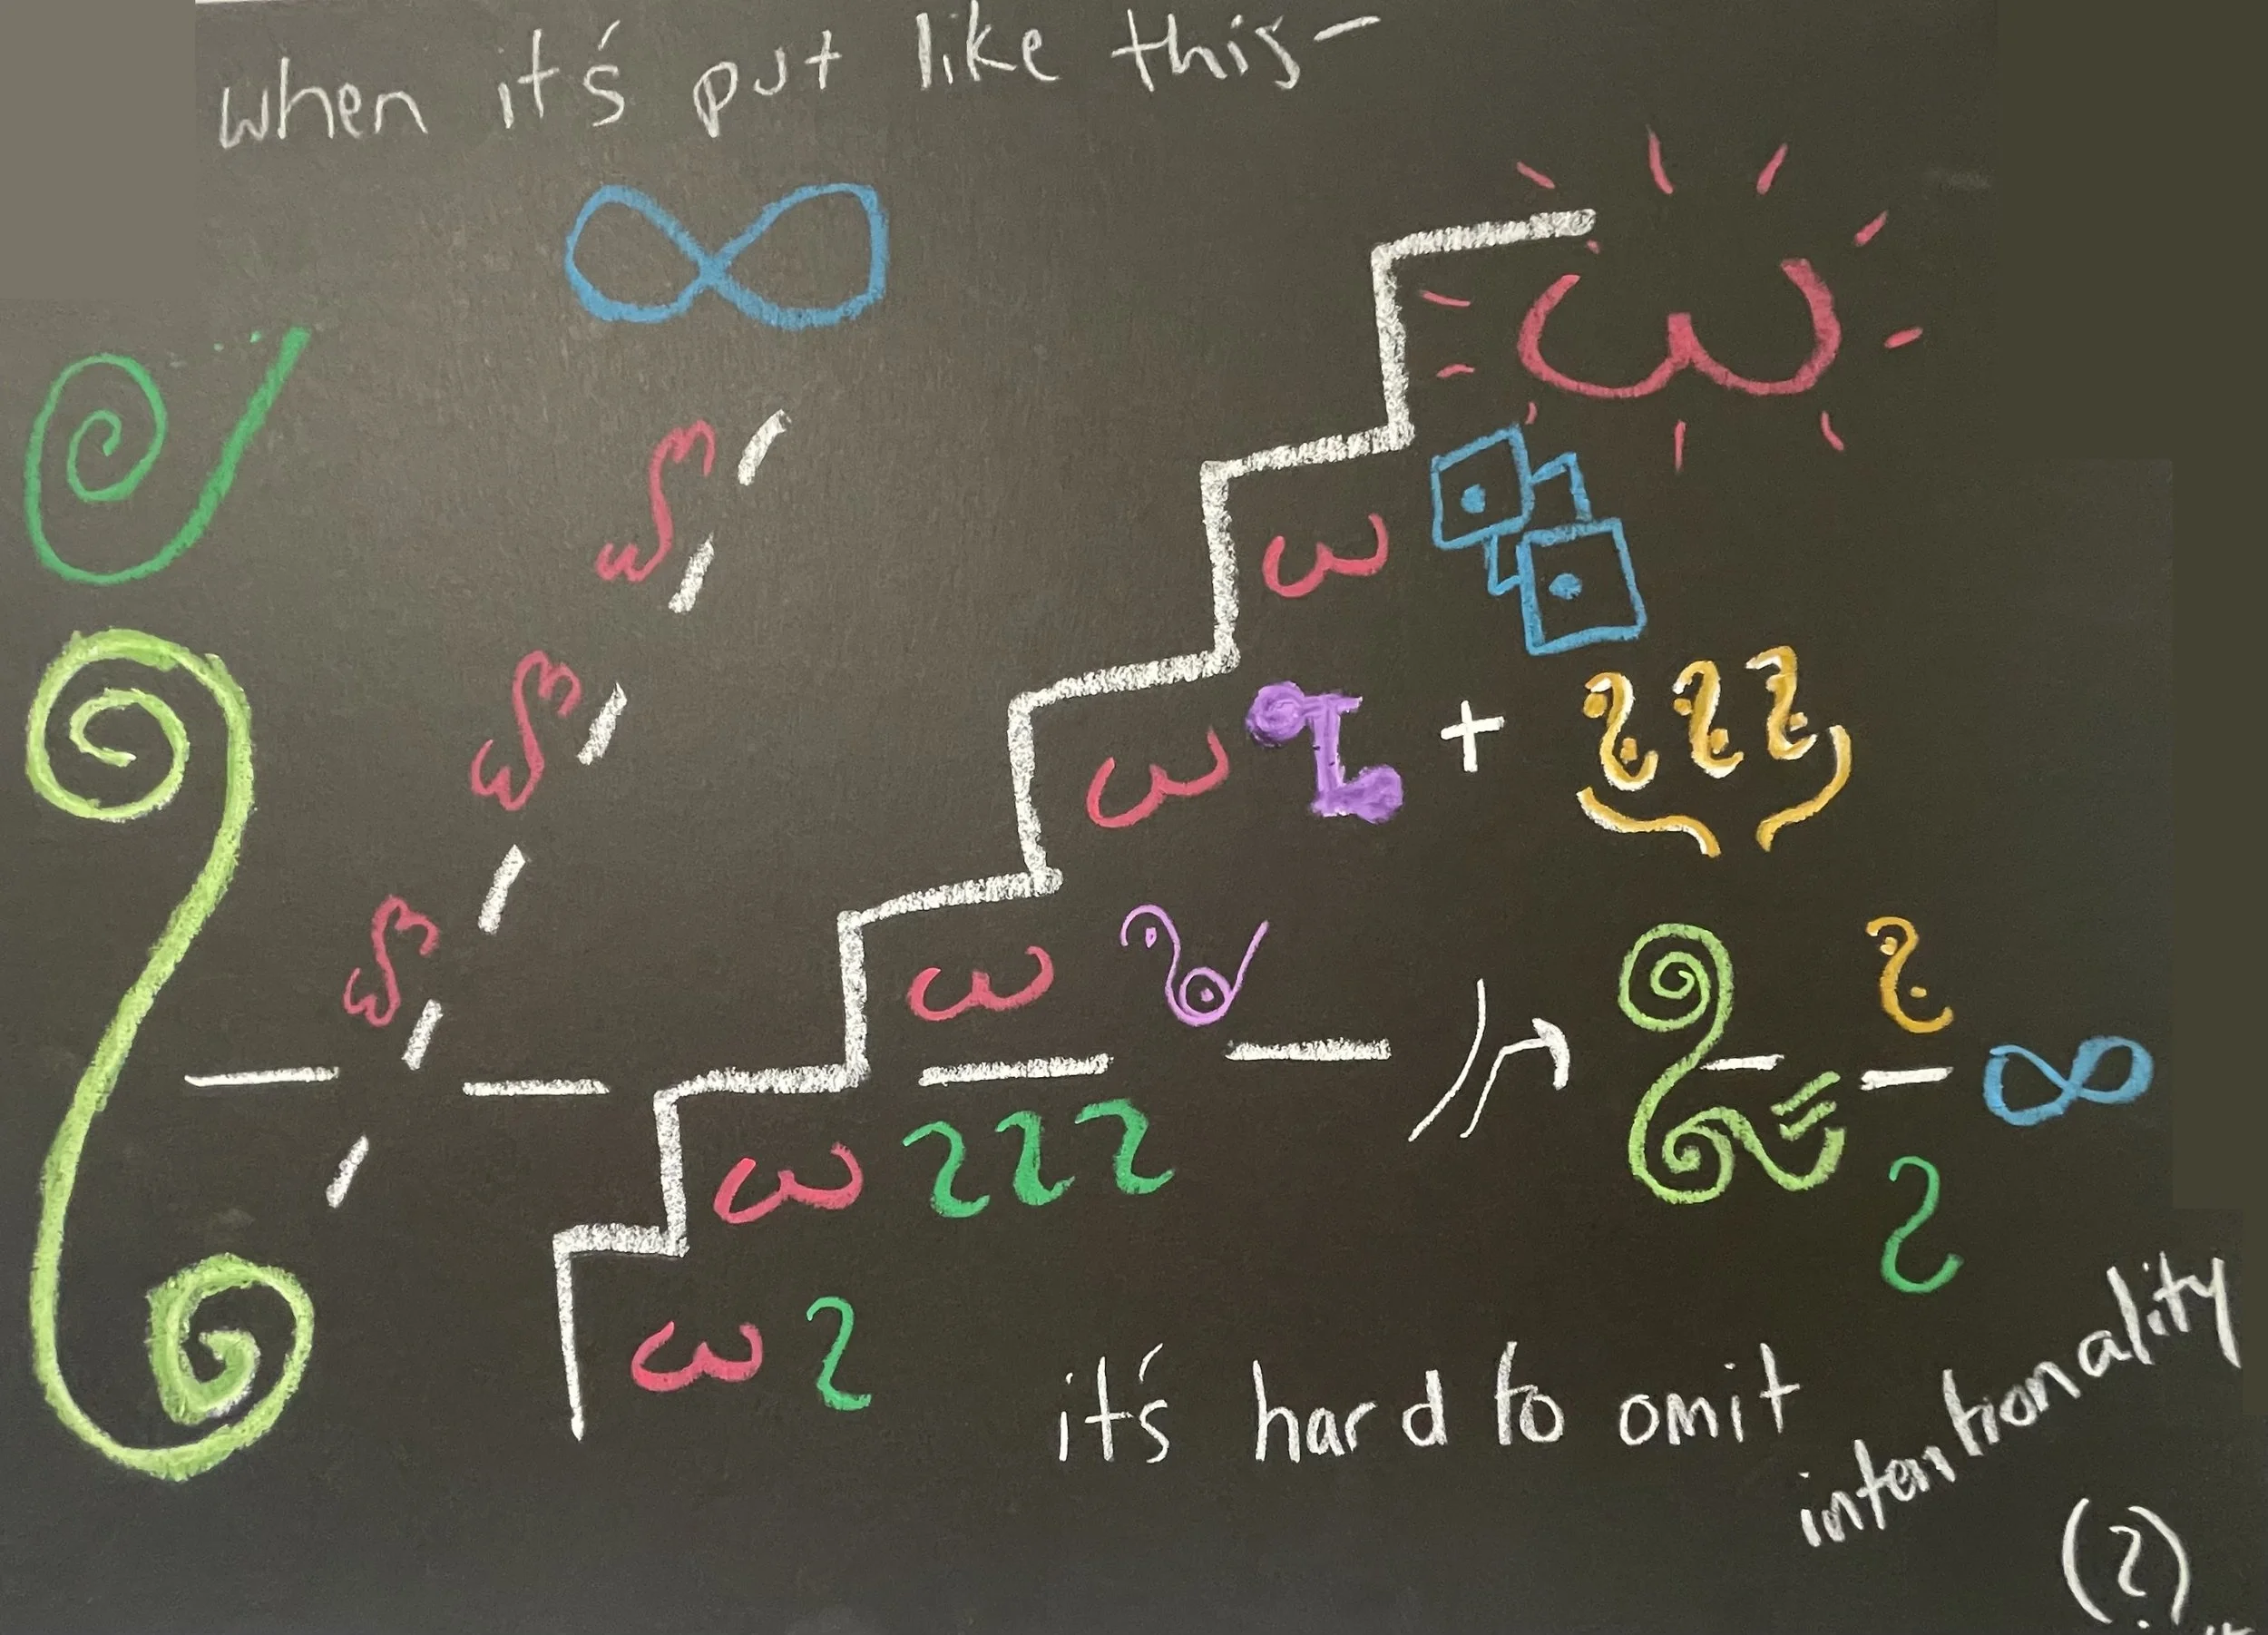 when it's put like this-
∞
ω
ω
ω
+
ω
∞
ω
ω
it's hard to omit
intentionality
(?)